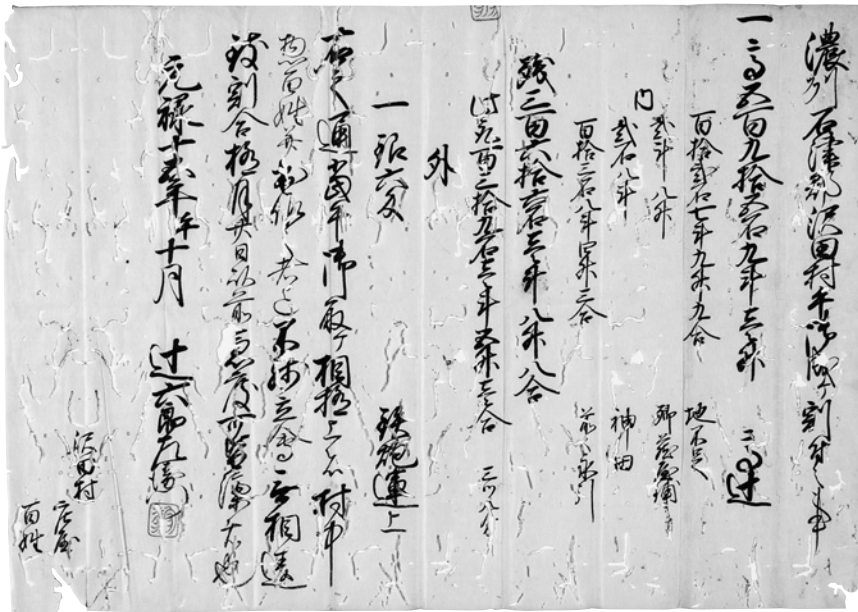 濃州石津郡沢田村午御成ヶ割付之事
一高五百九拾六石九斗三升 高辻
百拾弐石七斗九升九合 地不足
内
弐斗八升 郷蔵屋鋪
弐石八斗 神田
百拾三石八斗四升三合 前々永引
残三百六拾六石三斗八升八合
此取百三拾九石弐斗五升弐合 三ツ八分
外
一銀六匁 鉄炮運上
右之通当午御取ヶ相極上者村中
惣百姓并出作之者迄不残立会無相違
致割合極月廿日以前急度可皆済者也
元禄十五年午十月 辻六郎左衛門
沢田村
庄屋
百姓